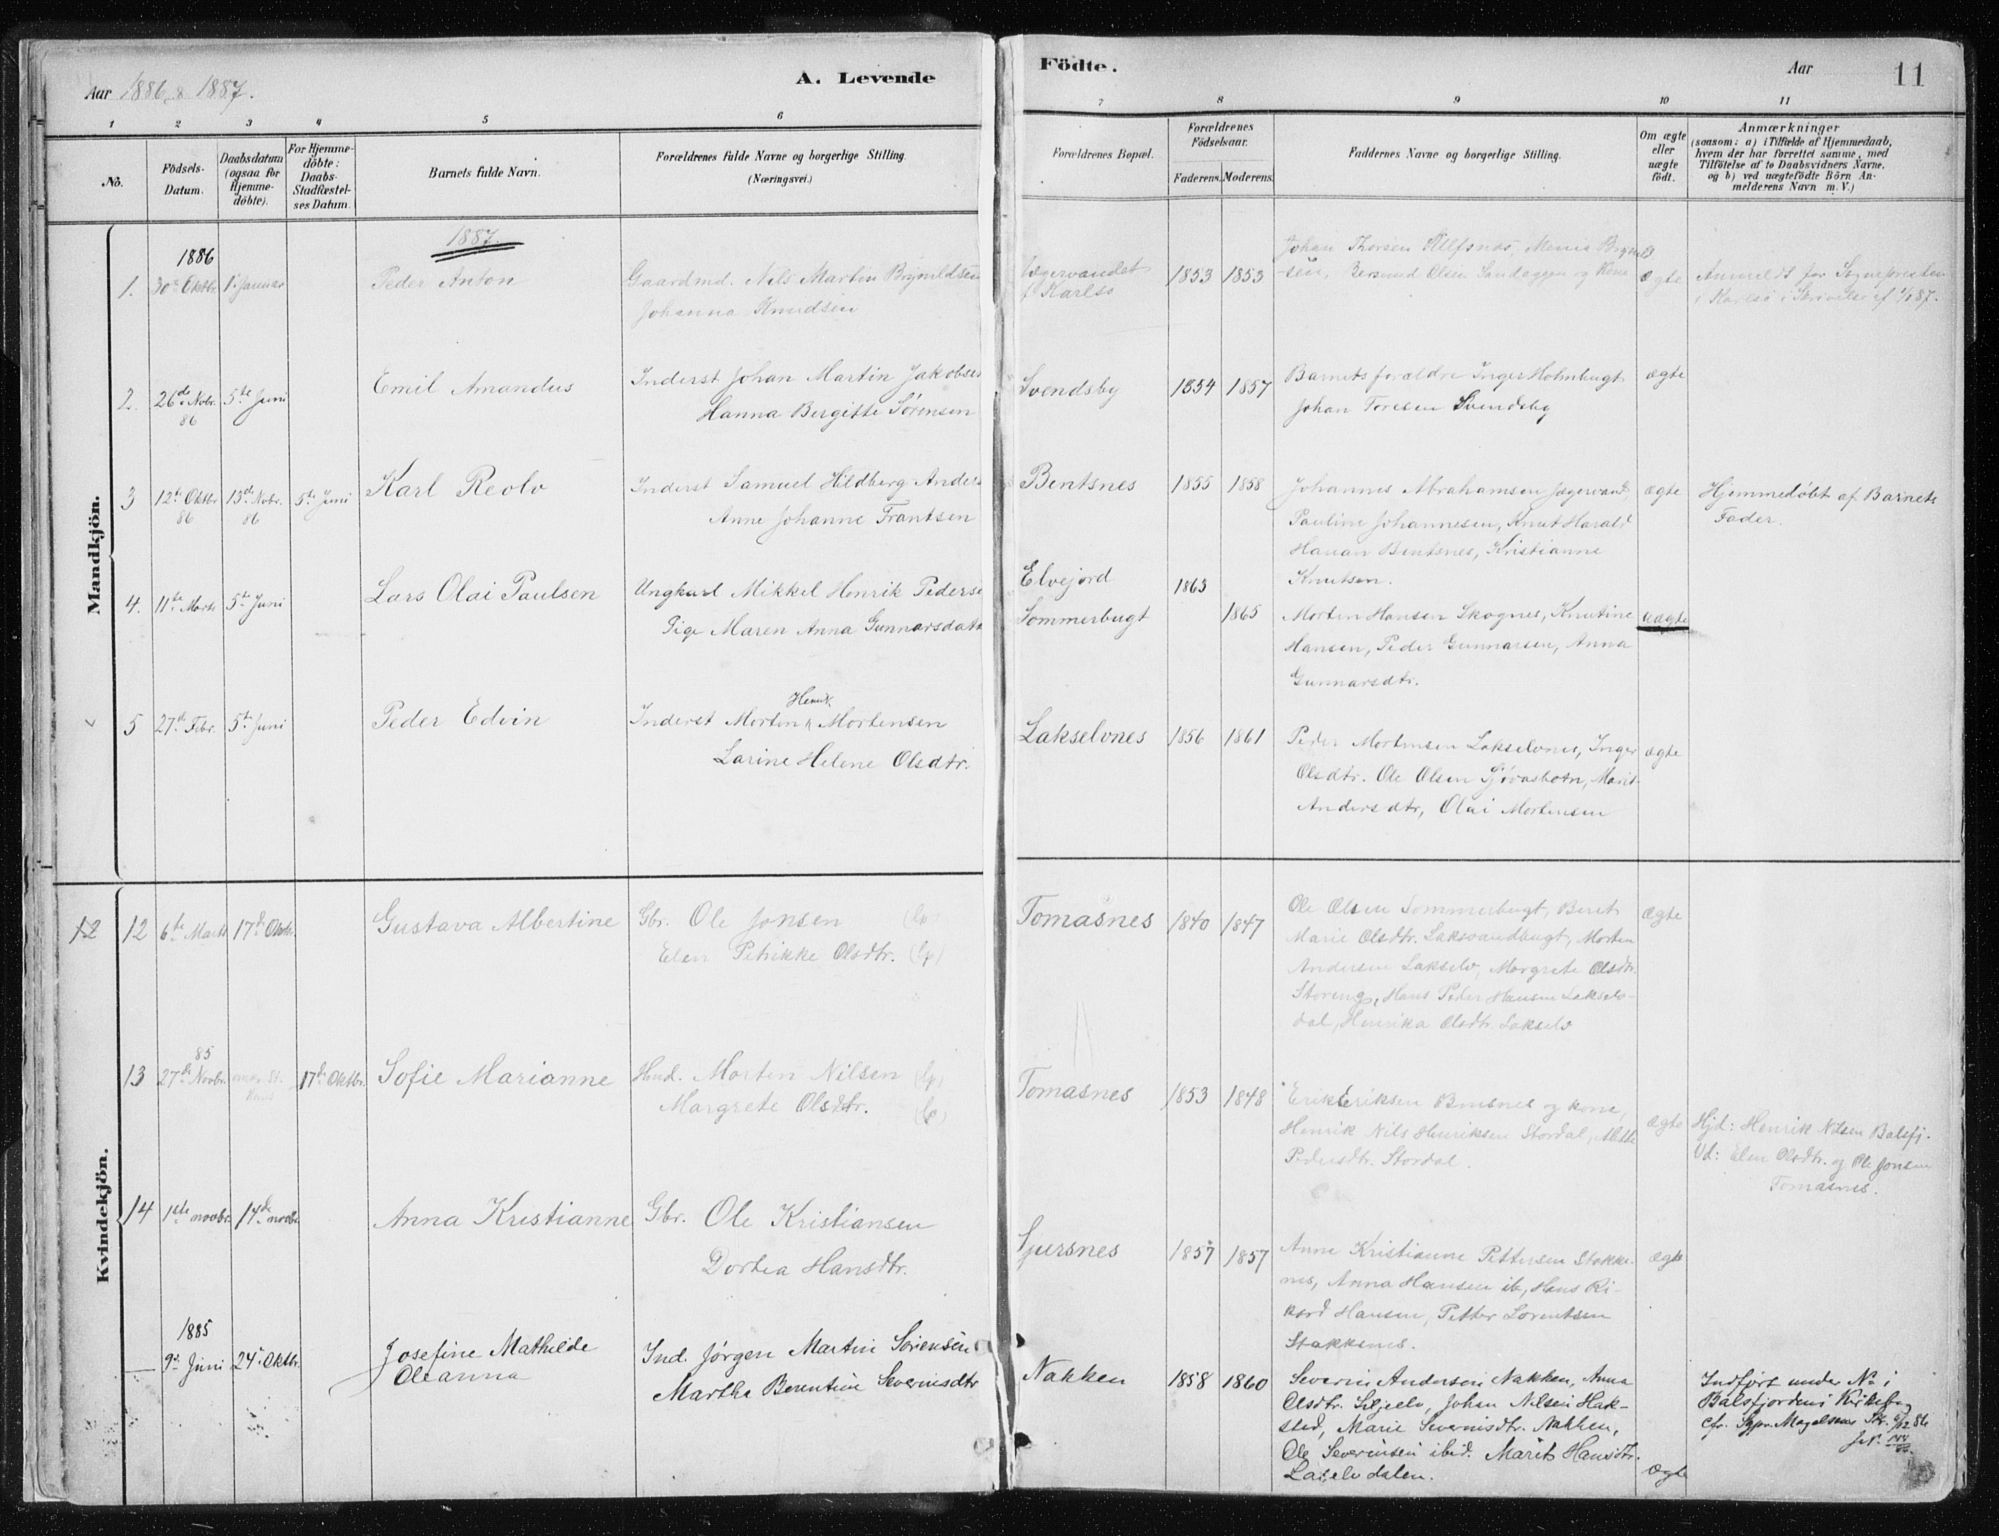 Aar 1886 & 1887.
A. Levende
Födte.
Aar
11
1 2 3 4 5 6 7 8 9 10 11
No.
Födsels-
Datum.
Daabsdatum
(ogsaa for
Hjemme-
döbte).
For Hjemme-
döbte:
Daabs-
Stadfæstel-
ses Datum.
Barnets fulde Navn.
Forældrenes fulde Navne og borgerlige Stilling.
(Næringsvei.)
Forældrenes Bopæl.
Forældrenes
Födselsaar.
Faderens. Moderens.
Faddernes Navne og borgerlige Stilling.
Om ægte
eller
uægte
født.
Anmærkninger
(saasom: a) i Tilfælde af Hjemmedaab,
hvem der har forrettet samme, med
Tilföielse af to Daabsvidners Navne.
og b) ved uægtefödte Börn An-
melderens Navn m. V.)
Mandkjön.
1887
1886
1. 30te Oktbr. 1. Januar
Peder Anton
Gaardmd. Nils Martin Brynildsen
Johanna Knudsen
Jægervandet
Karlsö
1853 1853
Johan Thorsen
Olsen og
ægte
Anmeldt for Sognepresten
i Karlsö i Skrivelse af 87.
2. 26de Novbr. 86 5te Juni
Emil Amandus
Inderst Johan Martin Jakobsen
Hanna Bergitte Sørensen
Svendsby
1854 1857
Barnets forældre Inger Holmbugt
Johan Toresen Svendsby
ægte
3 12te Oktbr. 86 13de Novbr. 86 5te Juni
Karl Reolv
Inderst Samuel Hildberg Anders
Anne Johanne Frantsen
Bentsnes
1855 1858
Johannes Abrahamsen Jægervand
Pauline Johannesen, Knut Harald
Hanan Bentsnes, Kristianne
Knutsen.
ægte
Hjemmedøbt af Barnets
Fader.
4. 11te Marts 5te Juni
Lars Olai Paulsen
Ungkarl Mikkel Henrik Peders
Pige Maren Anna Gunnarsdatt
Elvejord
Sommerbugt
1863
1865
Morten Hansen Skognes, Knutine
Hansen, Peder Gunnarsen, Anna
Gunnarsdtr.
uægte
5 27de Febr. 5te Juni
Peder Edvin
Inderst Morten Henrik Mortensen
Larine Helene Olsdtr.
Lakselvnes
1856 1861
Peder Mortensen Lakselvnes, Inger
Olsdtr. Ole Olsen Sjøvasbotn, Marit
Andersdtr, Olai Mortensen
ægte
Kvindekjön.
12 12 6te Marts 17de Oktbr.
Gustava Albertine
Gbr. Ole Jonsen (Lp)
Elen Petrikke Olsdtr. (Lp)
Tomasnes
1840 1847
Ole Olsen Sommerbugt, Beret
Marie Olsdtr. Laksvandbugt, Morten
Andersen Lakselv, Margrete Olsdtr.
Storeng, Hans Peder Hansen Lakselv-
dal, Henrika Olsdtr. Lakselv
ægte
13 85 27de Novbr. 17de Oktbr.
Sofie Marianne
Husd. Morten Nilsen (Lp)
Margrete Olsdtr. (Lp)
Tomasnes
1853 1848
Erik Eriksen og kone,
Henrik Nils Henriksen Stordal, Mette
Pedersdtr. Stordal.
ægte
Hjd: Henrik Nilsen Balsfj.
Vd: Elen Olsdtr. og Ole Jonsen
Tomasnes.
14 1ste novbr. 14de novbr
Anna Kristianne
Gbr. Ole Kristiansen
Dortea Hansdtr.
Sjursnes
1857 1857
Anne Kristianne Pettersen Stakke-
nes, Anna Hansen ib, Hans Ri-
kard Hansen, Petter Lorentsen
Stakkenes.
ægte
1885
— 9de Juni 24de Oktbr.
Josefine Mathilde
Oleanna
Ind. Jørgen Martin Sørensen
Martha Berentine Severinsdtr
Nakken
1858 1860
Severin Andersen Nakken, Anna
Olsdtr. Seljelv, Johan Nilsen Hak-
sted, Marie Severinsdtr. Nakken,
Ole Severinsen ibid. Marit Hansdtr.
Lakselvdalen.
ægte
Indført under No 1
Balsfjordens Kirkebog
cfr. Sgpr. Magelsens Skr. 9/12 86